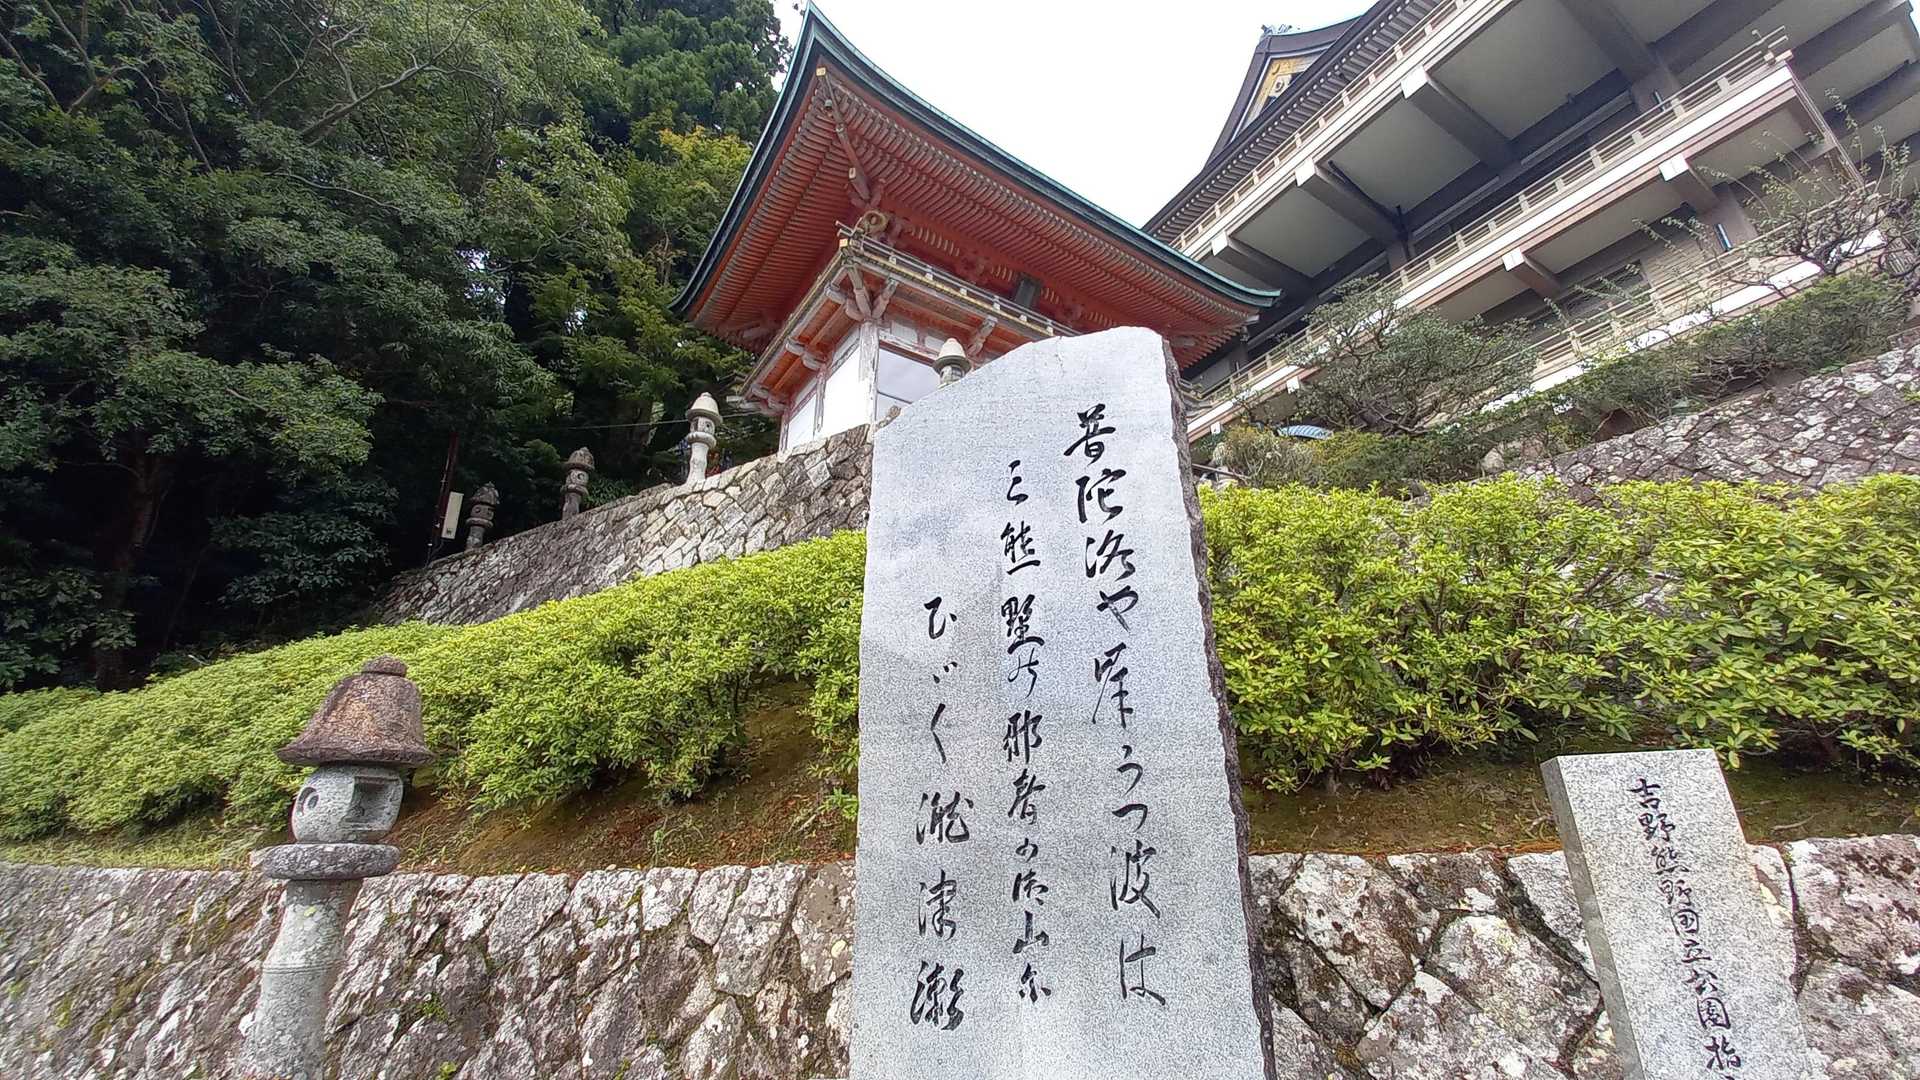 普陀洛や岸うつ波は
三熊野の那智のお山尓
ひゞく瀧津瀬
吉野熊野国立公園指